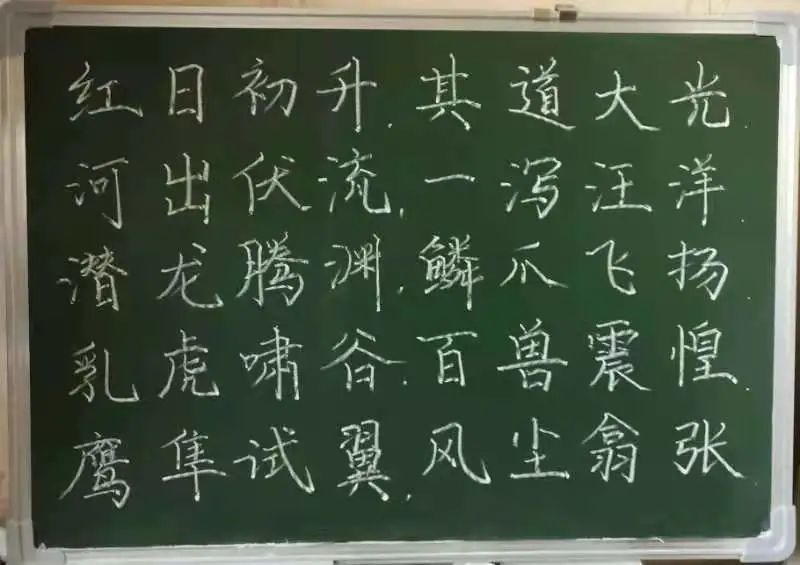 红日初升,其道大光.
河出伏流,一泻汪洋.
潜龙腾渊,鳞爪飞扬.
乳虎啸谷,百兽震惶.
鹰隼试翼,风尘翕张.